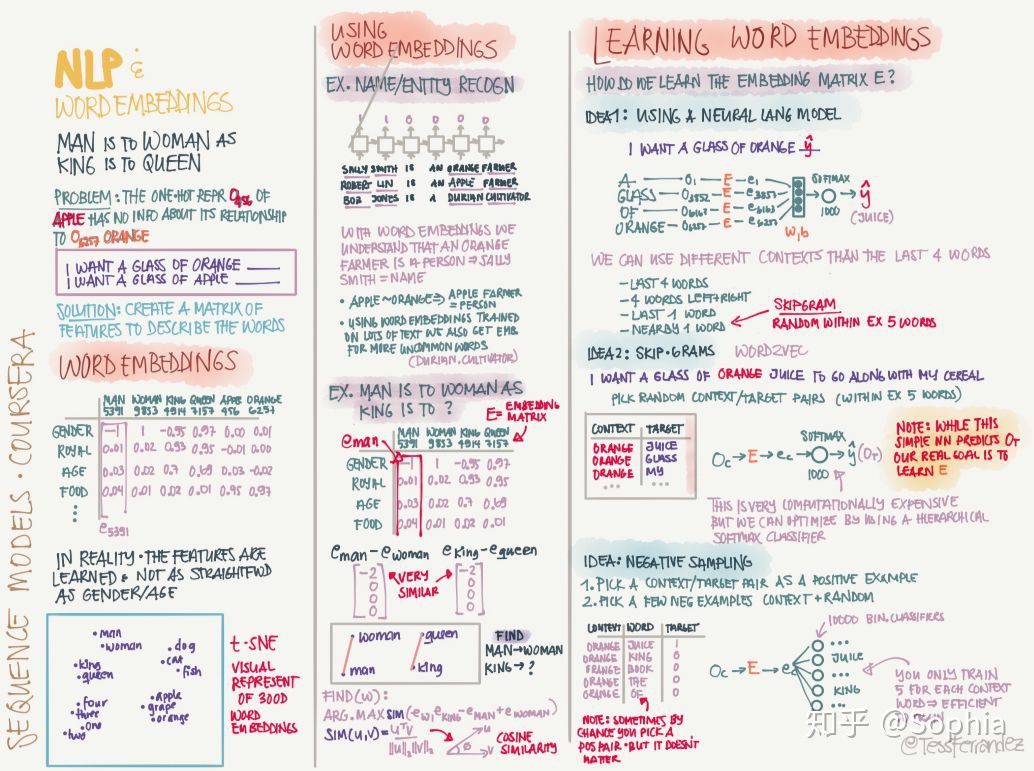 SEQUENCE MODELS · COURSERA
NLP &
WORD EMBEDDINGS
MAN IS TO WOMAN AS
KING IS TO QUEEN
PROBLEM: THE ONE-HOT REPR O456 OF
APPLE HAS NO INFO ABOUT ITS RELATIONSHIP
TO O6257 ORANGE
I WANT A GLASS OF ORANGE ____
I WANT A GLASS OF APPLE ____
SOLUTION: CREATE A MATRIX OF
FEATURES TO DESCRIBE THE WORDS
WORD EMBEDDINGS
MAN WOMAN KING QUEEN APPLE ORANGE
5391 9853 4914 7157 456 6257
GENDER -1 1 -0.95 0.97 0.00 0.01
ROYAL 0.01 0.02 0.93 0.95 -0.01 0.00
AGE 0.03 0.02 0.7 0.69 0.03 -0.02
FOOD 0.04 0.01 0.02 0.01 0.95 0.97
e5391
IN REALITY · THE FEATURES ARE
LEARNED & NOT AS STRAIGHTFWD
AS GENDER/AGE
man
woman
dog
cat
fish
king
queen
four
three
one
two
apple
grape
orange
t-SNE
VISUAL
REPRESENT
OF 300D
WORD
EMBEDDINGS
USING
WORD EMBEDDINGS
EX. NAME/ENTITY RECOGN
1 1 0 0 0 0
SALLY SMITH IS AN ORANGE FARMER
ROBERT LIN IS AN APPLE FARMER
BOB JONES IS A DURIAN CULTIVATOR
WITH WORD EMBEDDINGS WE
UNDERSTAND THAT AN ORANGE
FARMER IS A PERSON ⇒ SALLY
SMITH = NAME
• APPLE ~ ORANGE ⇒ APPLE FARMER
= PERSON
• USING WORD EMBEDDINGS TRAINED
ON LOTS OF TEXT WE ALSO GET EMB.
FOR MORE UNCOMMON WORDS
(DURIAN, CULTIVATOR)
EX. MAN IS TO WOMAN AS
KING IS TO ?
E = EMBEDDING
MATRIX
eman
MAN WOMAN KING QUEEN
5391 9853 4914 7157
GENDER -1 1 -0.95 0.97
ROYAL 0.01 0.02 0.93 0.95
AGE 0.03 0.02 0.7 0.69
FOOD 0.04 0.01 0.02 0.01
eman - ewoman eking - equeen
-2 -2
0 0
0 0
0 0
VERY
SIMILAR
woman
man
queen
king
FIND
MAN → WOMAN
KING → ?
FIND(W):
ARG.MAX SIM(ew, eking - eman + ewoman)
SIM(U,V) = uTv / ||u||2||v||2
u
v
ø
COSINE
SIMILARITY
LEARNING WORD EMBEDDINGS
HOW DO WE LEARN THE EMBEDDING MATRIX E?
IDEA1: USING A NEURAL LANG MODEL
I WANT A GLASS OF ORANGE ŷ
A O1 → E → e1
GLASS O3852 → E → e3852
OF O6163 → E → e6163
ORANGE O6257 → E → e6257
W,b
SOFTMAX
1000
ŷ
(JUICE)
WE CAN USE DIFFERENT CONTEXTS THAN THE LAST 4 WORDS
- LAST 4 WORDS
- 4 WORDS LEFT+RIGHT
- LAST 1 WORD
- NEARBY 1 WORD
SKIPGRAM
RANDOM WITHIN EX 5 WORDS
IDEA2: SKIP-GRAMS WORD2VEC
I WANT A GLASS OF ORANGE JUICE TO GO ALONG WITH MY CEREAL
PICK RANDOM CONTEXT/TARGET PAIRS (WITHIN EX 5 WORDS)
CONTEXT TARGET
ORANGE JUICE
ORANGE GLASS
ORANGE MY
... ...
Oc → E → ec → ŷ (OT)
SOFTMAX
1000
NOTE: WHILE THIS
SIMPLE NN PREDICTS OT
OUR REAL GOAL IS TO
LEARN E
THIS IS VERY COMPUTATIONALLY EXPENSIVE
BUT WE CAN OPTIMIZE BY USING A HIERARCHICAL
SOFTMAX CLASSIFIER
IDEA: NEGATIVE SAMPLING
1. PICK A CONTEXT/TARGET PAIR AS A POSITIVE EXAMPLE
2. PICK A FEW NEG EXAMPLES CONTEXT + RANDOM
CONTEXT WORD TARGET
ORANGE JUICE 1
ORANGE KING 0
ORANGE BOOK 0
ORANGE THE 0
ORANGE OF 0
NOTE: SOMETIMES BY
CHANCE YOU PICK A
POS PAIR · BUT IT DOESN'T
MATTER
Oc → E → ec
10000 BIN. CLASSIFIERS
JUICE
KING
YOU ONLY TRAIN
5 FOR EACH CONTEXT
WORD ⇒ EFFICIENT
知乎 @Sophia
@TessFerrandez